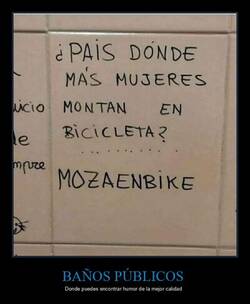 ¿PAIS DONDE
MÁS MUJERES
MONTAN EN
BICICLETA?
..........
MOZAENBIKE
icio
de
mpre
BAÑOS PÚBLICOS
Donde puedes encontrar humor de la mejor calidad